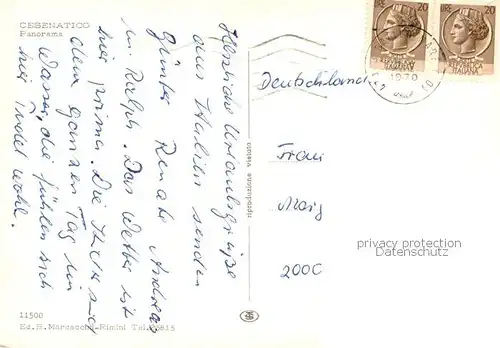 CESENATICO
Panorama
Herzliche Urlaubsgrüße
aus Italien senden
Günter Renate Andreas
u. Ralph. Das Wetter ist
hier prima. Die sind
den ganzen Tag im
Wasser, die fühlen sich
hier wohl.
11500
Ed. B. Marcacchi-Rimini Tel. 26815
riproduzione vietata
Deutschland
Frau
2000
L. 20
ITALIANA
ITALIANA
1970
privacy protection
DATENSCHUTZ